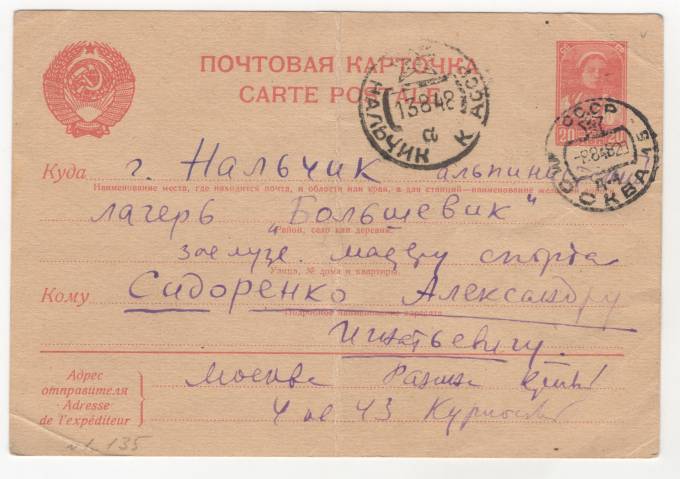 ПОЧТОВАЯ КАРТОЧКА
CARTE POSTALE
НАЛЬЧИК К АССР
13 8 48
а
СССР
20 20
СССР
-8 8 48 20
МОСКВА-15
Куда г. Нальчик
Наименование места, где находится почта, и области или края, а для станций—наименование
лагерь "Большевик"
Район, село или деревня
заслуж. мастеру спорта
Улица, № дома и квартиры.
Кому Сидоренко Александру
Подробное наименование адресата
Игнатьевичу.
Адрес
отправителя
Adresse
de l'expéditeur
Москва
4 43
135